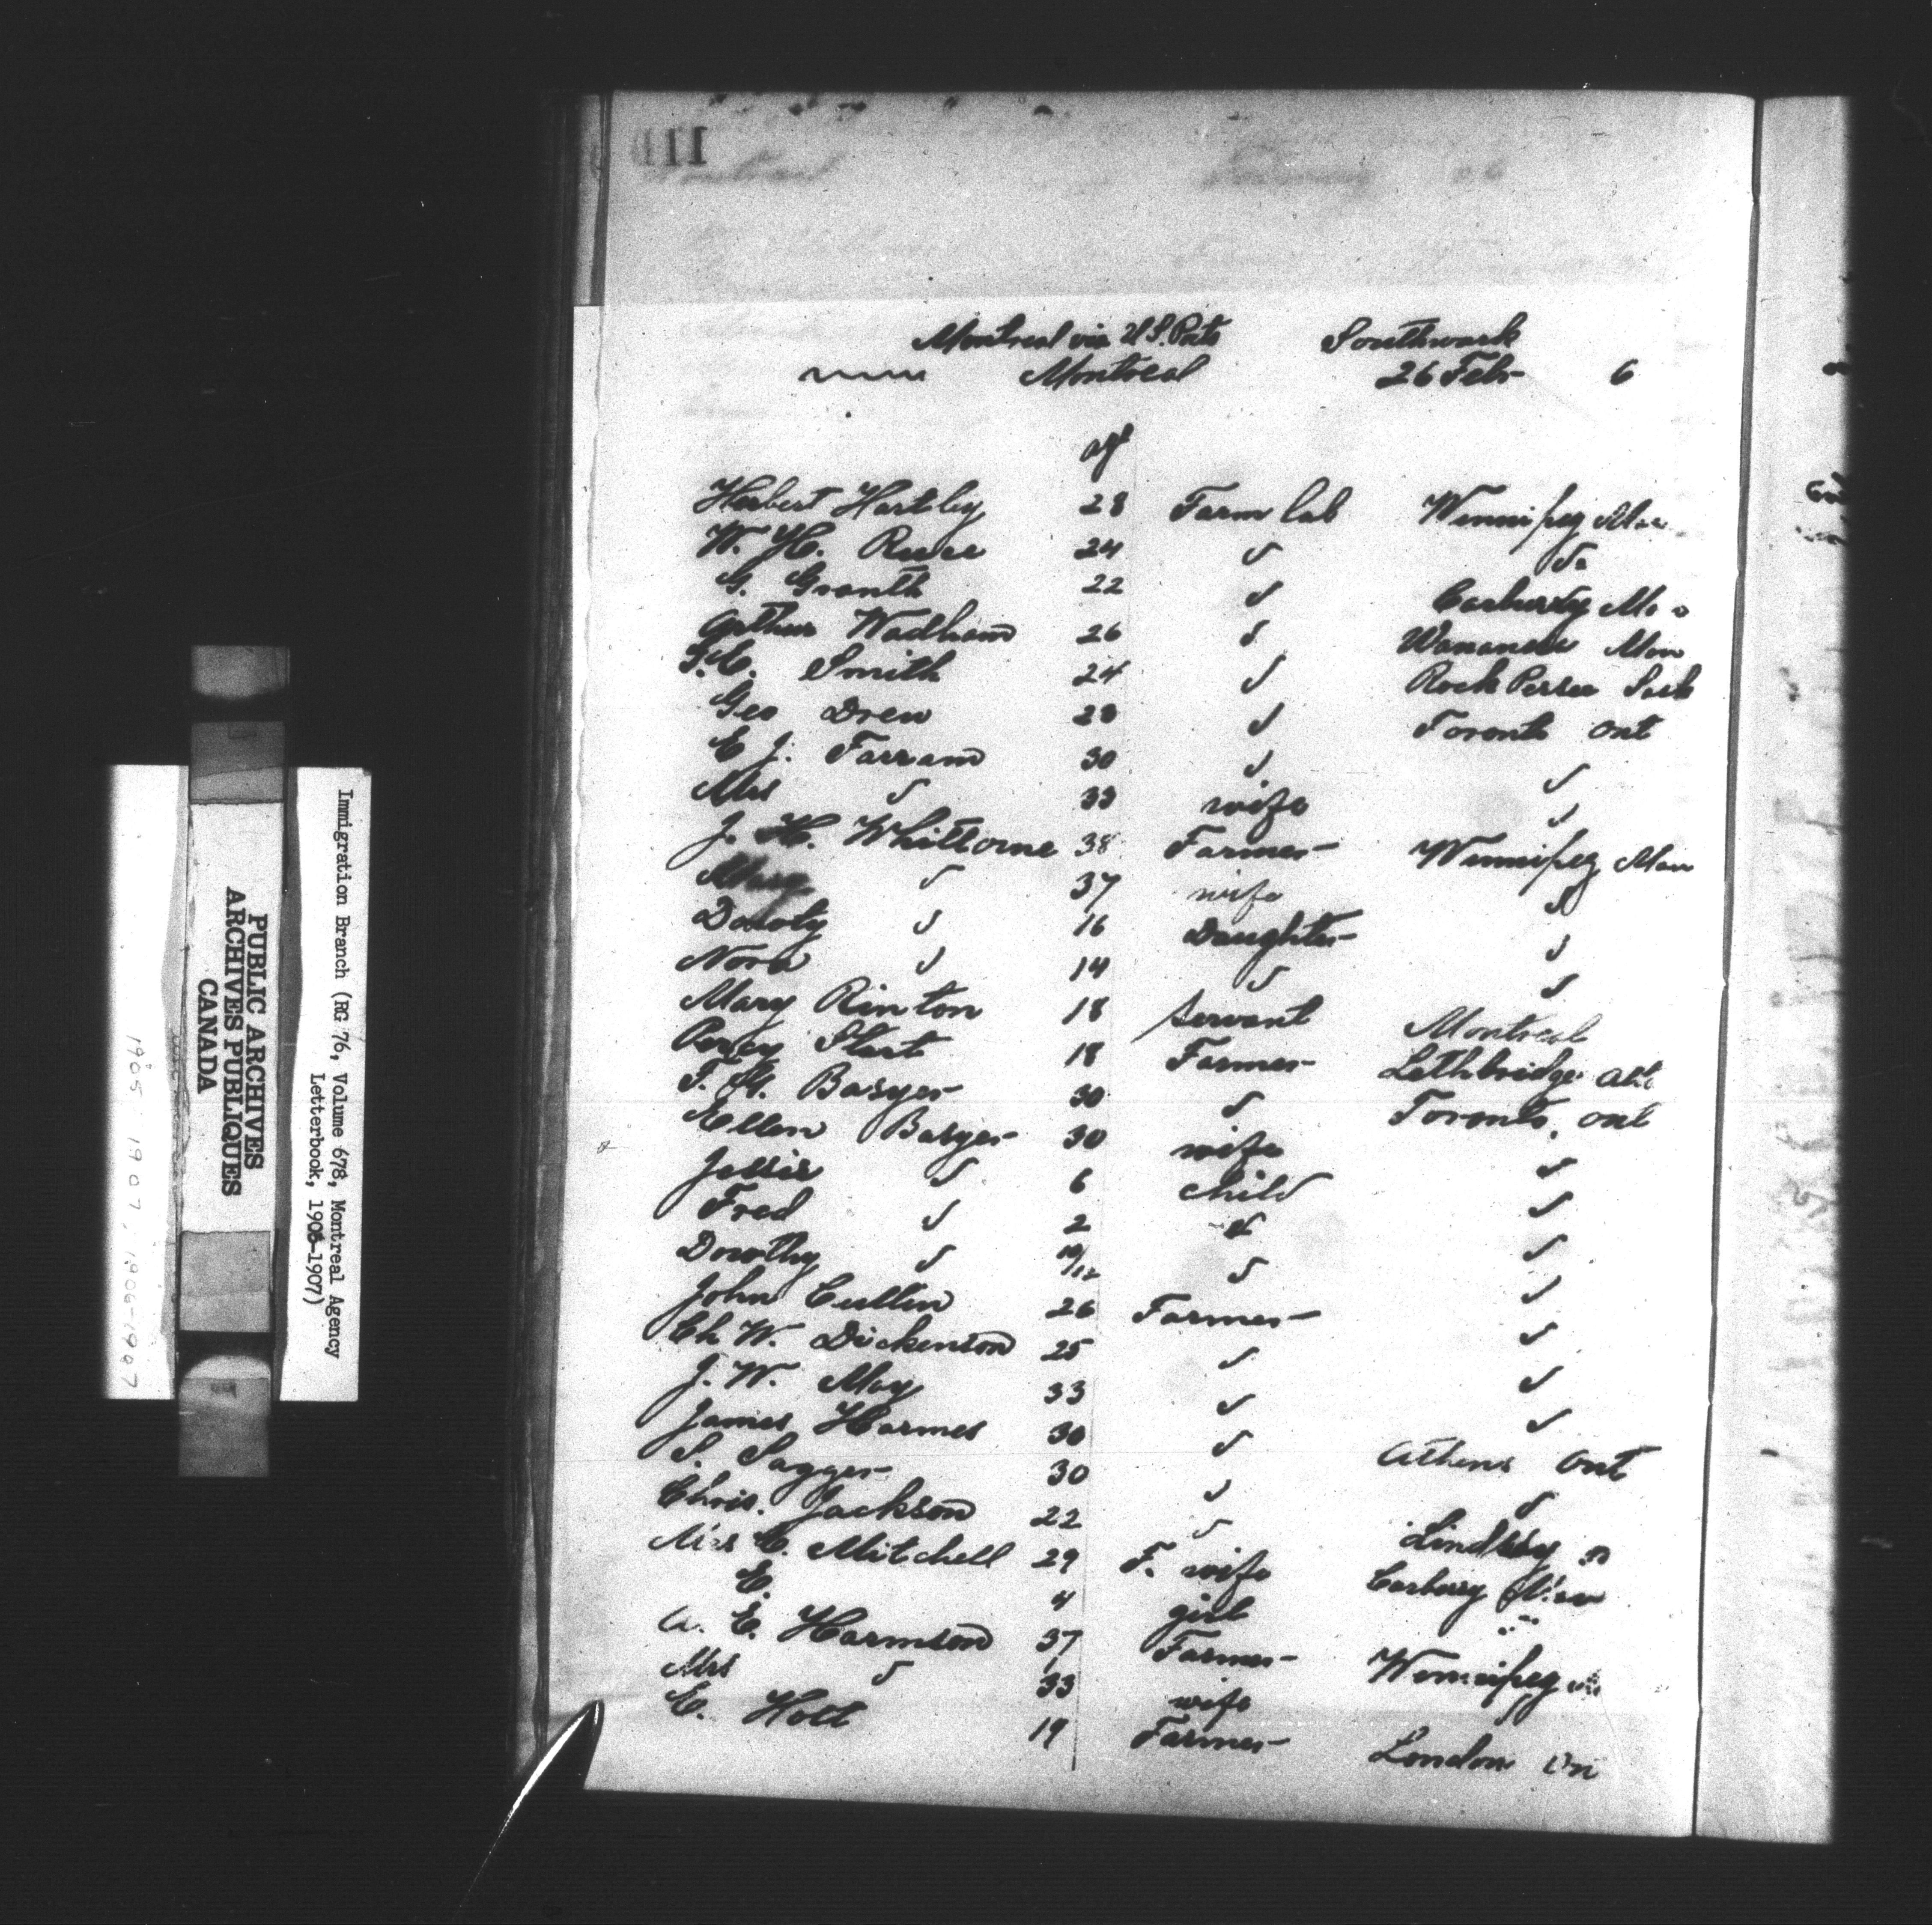 Montreal via U.S. Ports Southwark
Montreal 26 Feby 6
age
Herbert Hartley 28 Farm lab Winnipeg Man
W. H. Reece 24 " Do
G. Granth 22 " Carberry Man
Arthur Wadham 26 " Wawanesa Man
Smith 24 " Roche Percee Sask
Geo Drew 28 " Toronto Ont
E J. Farram 30 " "
Mrs " 33 wife "
J. H. Whittorne 38 Farmer Winnipeg Man
Mary " 37 wife "
Doroty " 16 Daughter "
Nora " 14 " "
Mary Rinton 18 Servant Montreal
Percy Start 18 Farmer Lethbridge Alta
F. H. Basyer 30 " Toronto, Ont
Ellen Basyer 30 wife "
Jessie " 6 child "
Fred " 2 " "
Dorothy " 10/12 " "
John Cullen 26 Farmer "
Ch W. Dickenson 25 " "
J. W. May 33 " "
James Harmes 30 " Athens Ont
S. Sagger 30 " "
Chris. Jackson 22 " Lindsay "
Mrs C. Mitchell 29 F. wife Carberry Man
E. 4 girl "
A. E. Harmson 37 Farmer Winnipeg
Mrs " 33 wife
E. Holt 19 Farmer London On
Immigration Branch (RG 76, Volume 678, Montreal Agency
Letterbook, 1905-1907)
PUBLIC ARCHIVES
ARCHIVES PUBLIQUES
CANADA
1905 1907, 1906-1907